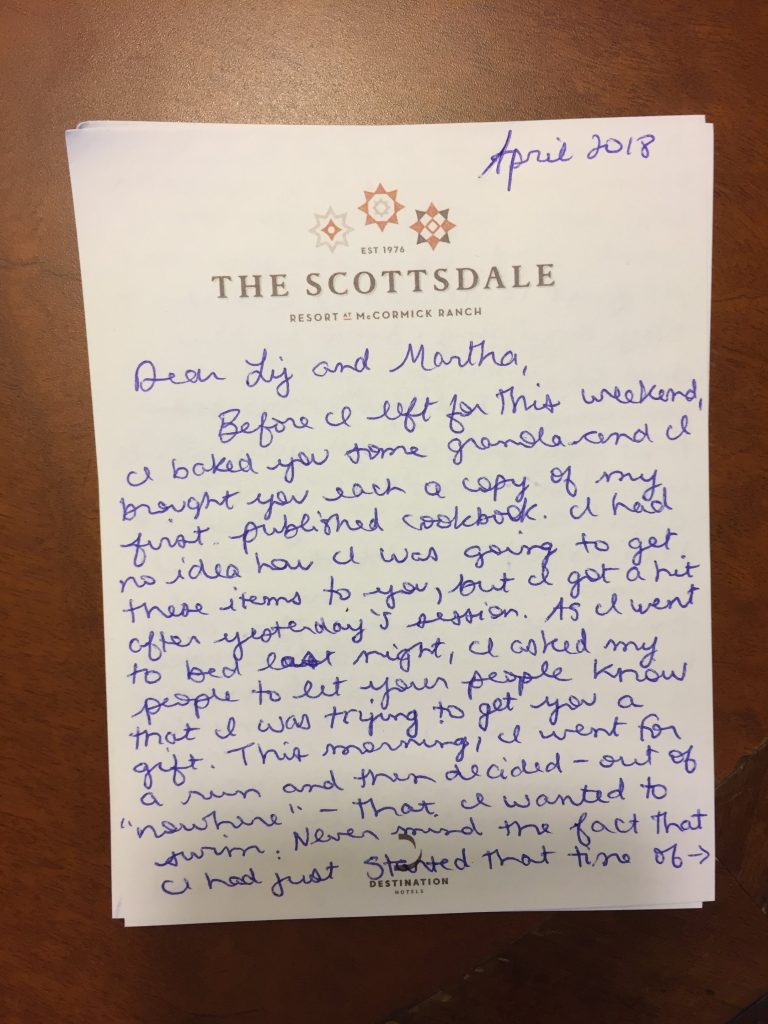 April 2018
EST 1976
THE SCOTTSDALE
RESORT AT McCORMICK RANCH
Dear Liz and Martha,
Before I left for this weekend,
I baked you some granola and I
brought you each a copy of my
first published cookbook. I had
no idea how I was going to get
these items to you, but I got a hit
after yesterday's session. As I went
to bed last night, I asked my
people to let your people know
that I was trying to get you a
gift. This morning, I went for
a run and then decided – out of
"nowhere" – that I wanted to
swim. Never mind the fact that
I had just started that time of →
DESTINATION
HOTELS